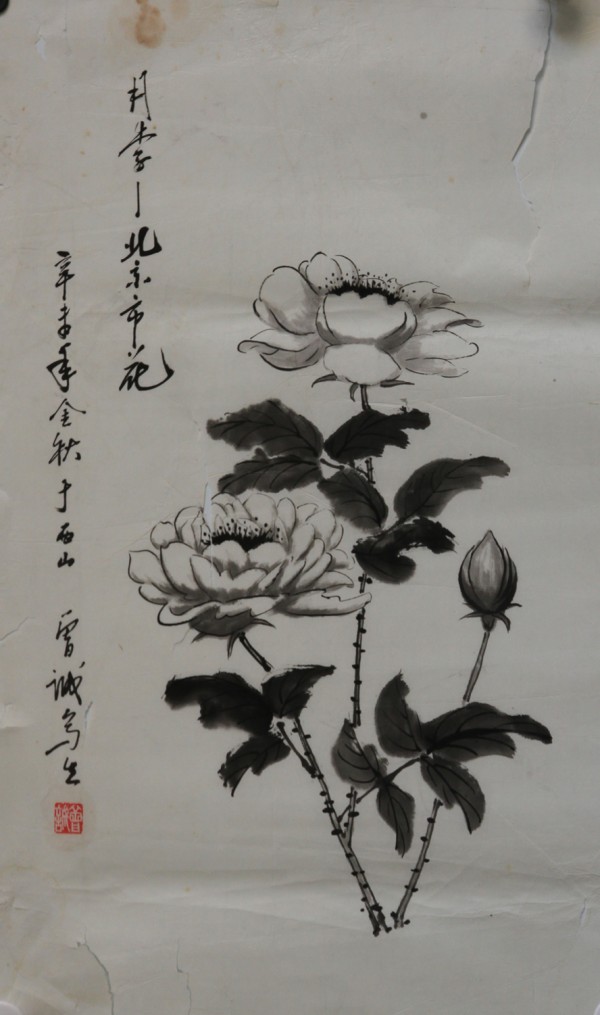 月季—北京市花
辛未年金秋于西山
曾诚写生
曾诚